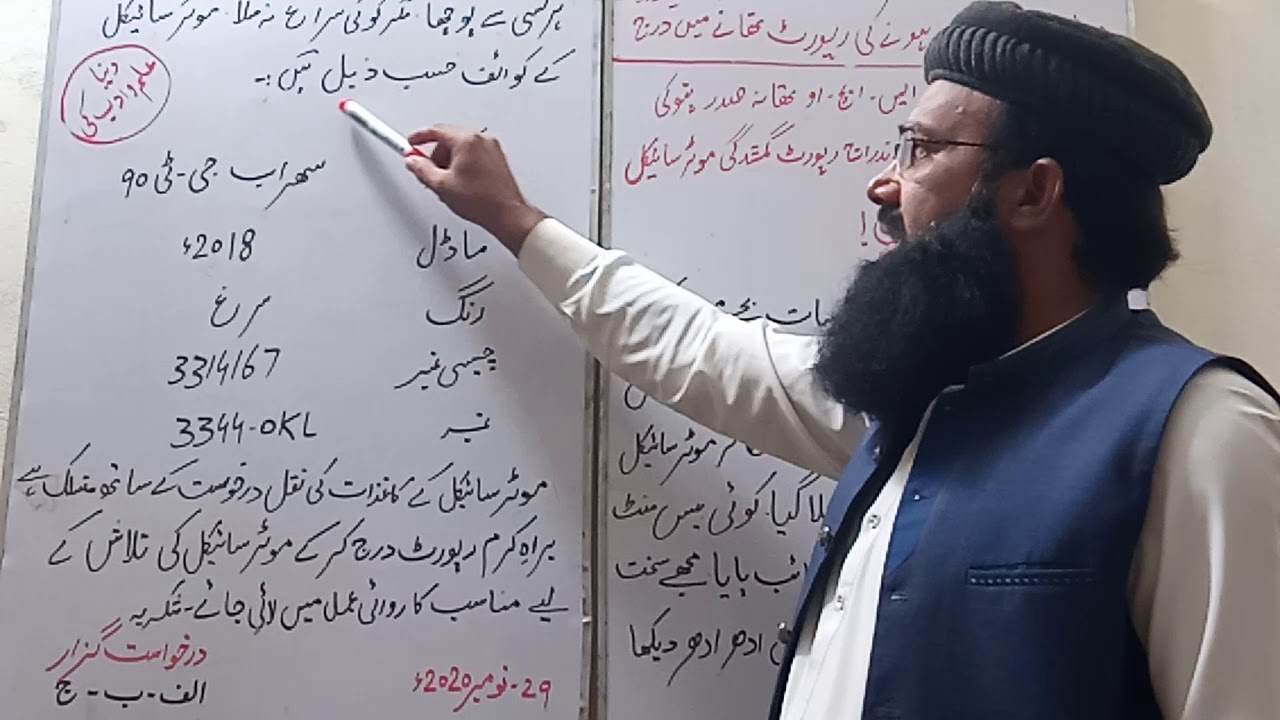 ہونے کی رپورٹ تھانے میں درج
ایس۔ایچ۔او تھانہ صدر پتوکی
اندراج رپورٹ گمشدگی موٹر سائیکل
موٹر سائیکل
گیا۔ کوئی بیس منٹ
پایا مجھے سخت
ادھر ادھر دیکھا
ہر کسی سے پوچھا۔ مگر کوئی سراغ نہ ملا۔ موٹر سائیکل
کے کوائف حسب ذیل ہیں :۔
دنیا
علم و ادب کی
سہراب جی-ٹی ۹۰
ماڈل 2018ء
رنگ سرغ
چیسی نمبر 3314167
نمبر 3344-OKL
موٹر سائیکل کے کاغذات کی نقل درخوست کے ساتھ منسلک ہے
براہِ کرم رپورٹ درج کر کے موٹر سائیکل کی تلاش کے
لیے مناسب کاروائی عمل میں لائی جائے۔ شکریہ
درخواست گزار
29-نومبر 2020ء الف-ب-ج